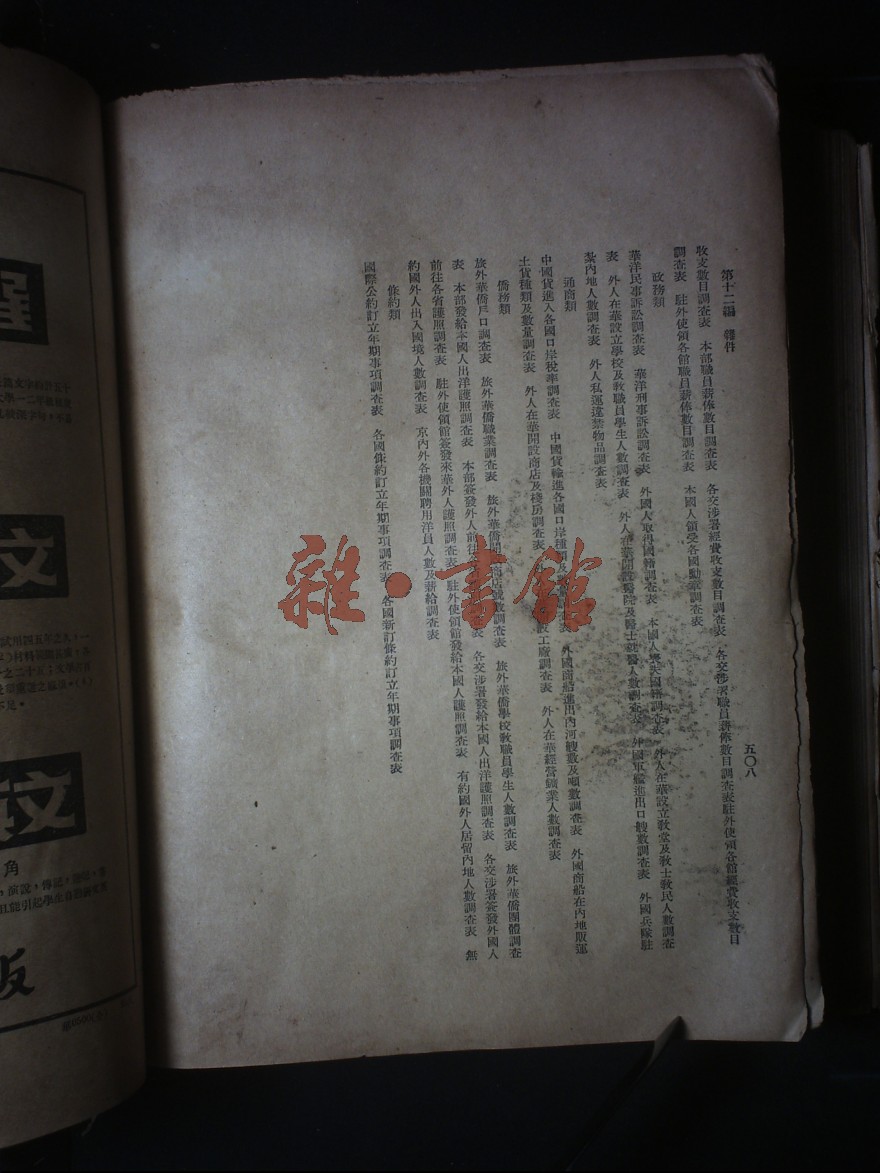 第十二編　雜件
五〇八
收支數目調查表　本部職員薪俸數目調查表　各交涉署經費收支數目調查表　各交涉署職員薪俸數目調查表駐外使領各館經費收支數目
調查表　駐外使領各館職員薪俸數目調查表　本國人領受各國勳章調查表
政務類
華洋民事訴訟調查表　華洋刑事訴訟調查表　外國人取得國籍調查表　本國人喪失國籍調查表　外人在華設立教堂及教士教民人數調查
表　外人在華設立學校及教職員學生人數調查表　外人在華開設醫院及醫士就醫人數調查表　外國軍艦進出口艘數調查表　外國兵隊駐
紮內地人數調查表　外人私運違禁物品調查表
通商類
中國貨進入各國口岸稅率調查表　中國貨輸進各國口岸種類及數量調查表　外國商船進出內河艘數及噸數調查表　外國商船在內地販運
土貨種類及數量調查表　外人在華開設商店及棧房調查表　外人在華開設工廠調查表　外人在華經營鑛業人數調查表
僑務類
旅外華僑戶口調查表　旅外華僑職業調查表　旅外華僑開設商店號數調查表　旅外華僑學校教職員學生人數調查表　旅外華僑團體調查
表　本部發給本國人出洋護照調查表　本部簽發外人前往各省護照調查表　各交涉署發給本國人出洋護照調查表　各交涉署簽發外國人
前往各省護照調查表　駐外使領館簽發來華外人護照調查表　駐外使領館發給本國人護照調查表　有約國外人居留內地人數調查表　無
約國外人出入國境人數調查表　京內外各機關聘用洋員人數及薪給調查表
條約類
國際公約訂立年期事項調查表　各國條約訂立年期事項調查表　各國新訂條約訂立年期事項調查表
雜·書館
文
文
角
版